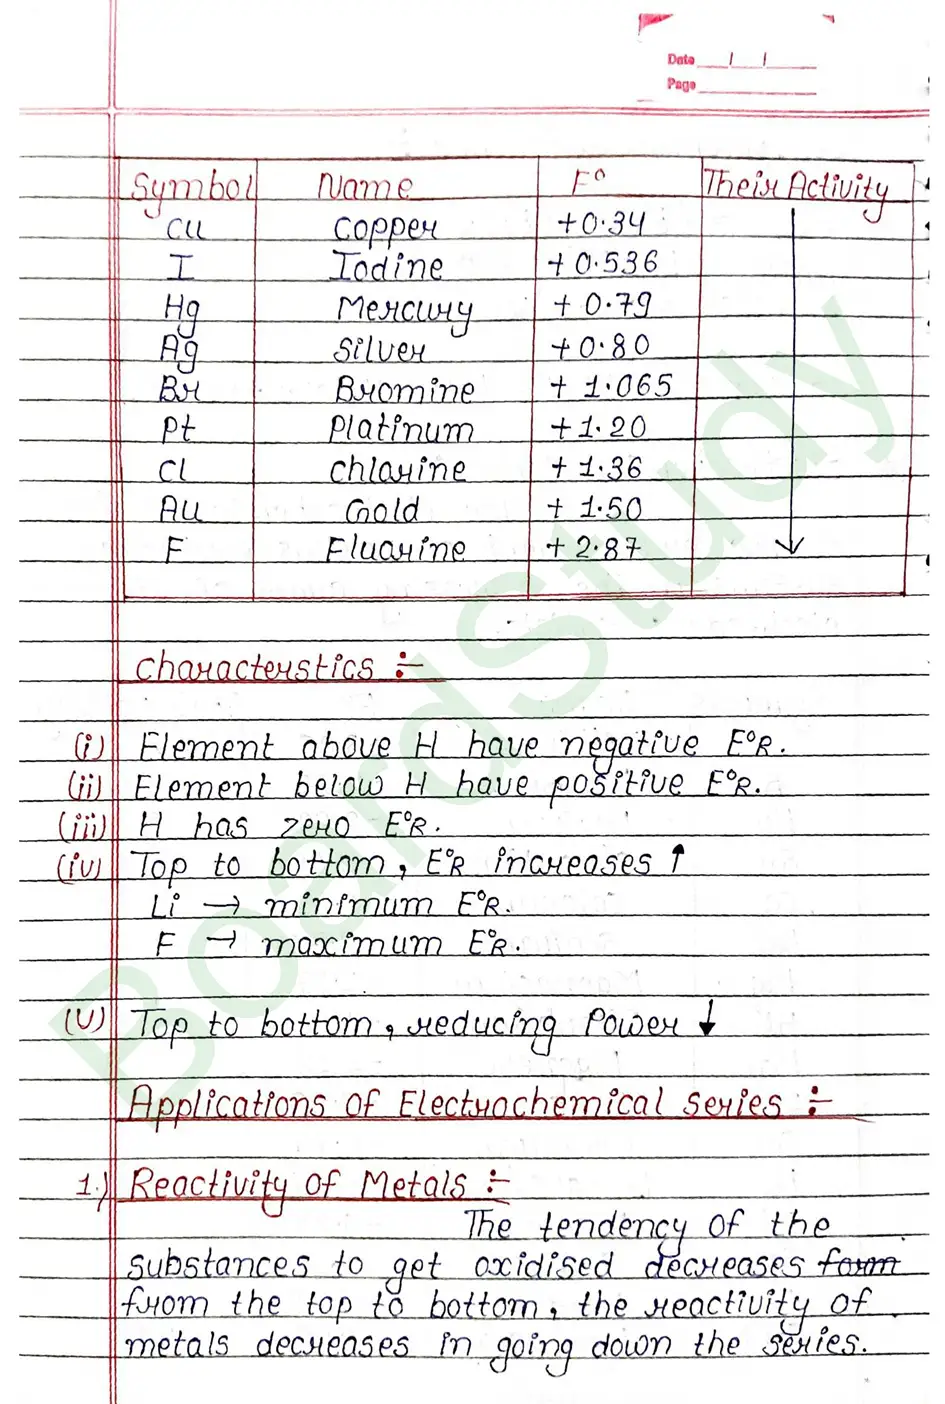 Date / /
Page
Symbol Name E° Their Activity
Cu Copper +0.34
I Iodine +0.536
Hg Mercury +0.79
Ag Silver +0.80
Br Bromine +1.065
Pt Platinum +1.20
Cl Chlorine +1.36
Au Gold +1.50
F Fluorine +2.87
Characterstics :-
(i) Element above H have negative E°R.
(ii) Element below H have positive E°R.
(iii) H has zero E°R.
(iv) Top to bottom, E°R increases ↑
Li → minimum E°R.
F → maximum E°R.
(v) Top to bottom, reducing Power ↓
Applications of Electrochemical series :-
1.) Reactivity of Metals :-
The tendency of the
substances to get oxidised decreases form
from the top to bottom, the reactivity of
metals decreases in going down the series.
BoardStudy